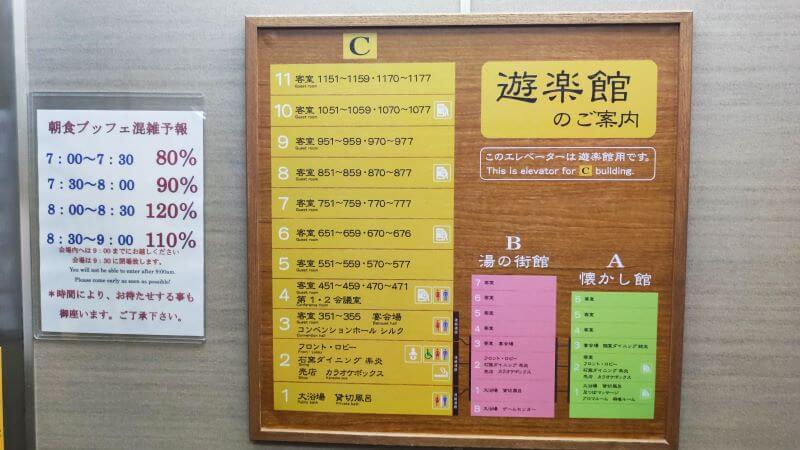 朝食ブッフェ混雑予報
7：00～7：30 80%
7：30～8：00 90%
8：00～8：30 120%
8：30～9：00 110%
会場内へは9：00までにお越しください
会場は9：30に閉場致します。
You will not be able to enter after 9:00am.
Please come early as soon as possible!
＊時間により、お待たせする事も
御座います。ご了承下さい。
C
11 客室 1151～1159・1170～1177
Guest room
10 客室 1051～1059・1070～1077
Guest room
9 客室 951～959・970～977
Guest room
8 客室 851～859・870～877
Guest room
7 客室 751～759・770～777
Guest room
6 客室 651～659・670～676
Guest room
5 客室 551～559・570～577
Guest room
4 客室 451～459・470～471
Guest room
第1・2会議室
Conference room
3 客室 351～355 宴会場
Guest room Banquet hall
コンベンションホール シルク
Convention hall
2 フロント・ロビー
Front / Lobby
石窯ダイニング 楽炎
売店 カラオケボックス
Shop Karaoke box
1 大浴場 貸切風呂
Public bath Private bath
遊楽館
のご案内
このエレベーターは遊楽館用です。
This is elevator for C building.
B
湯の街館
7 客室
6 客室
5 客室
4 客室
3 客室 宴会場
2 フロント・ロビー
石窯ダイニング 楽炎
売店 カラオケボックス
1 大浴場 貸切風呂
B 大浴場 ゲームセンター
A
懐かし館
6 客室
5 客室
4 客室
3 宴会場
2 客室
フロント・ロビー
石窯ダイニング 楽炎
1 大浴場 貸切風呂
足つぼマッサージ
アロマルーム